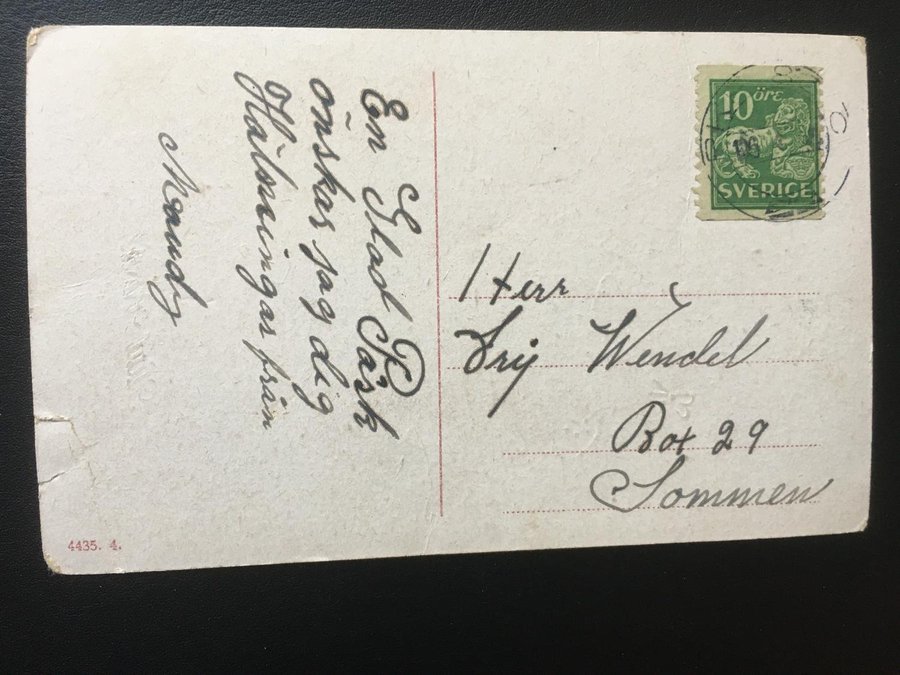 En Glad Påsk
önskas jag dig
Hälsningar från
10 öre
SVERIGE
Herr
Wendel
Box 29
Sommen
4435. 4.